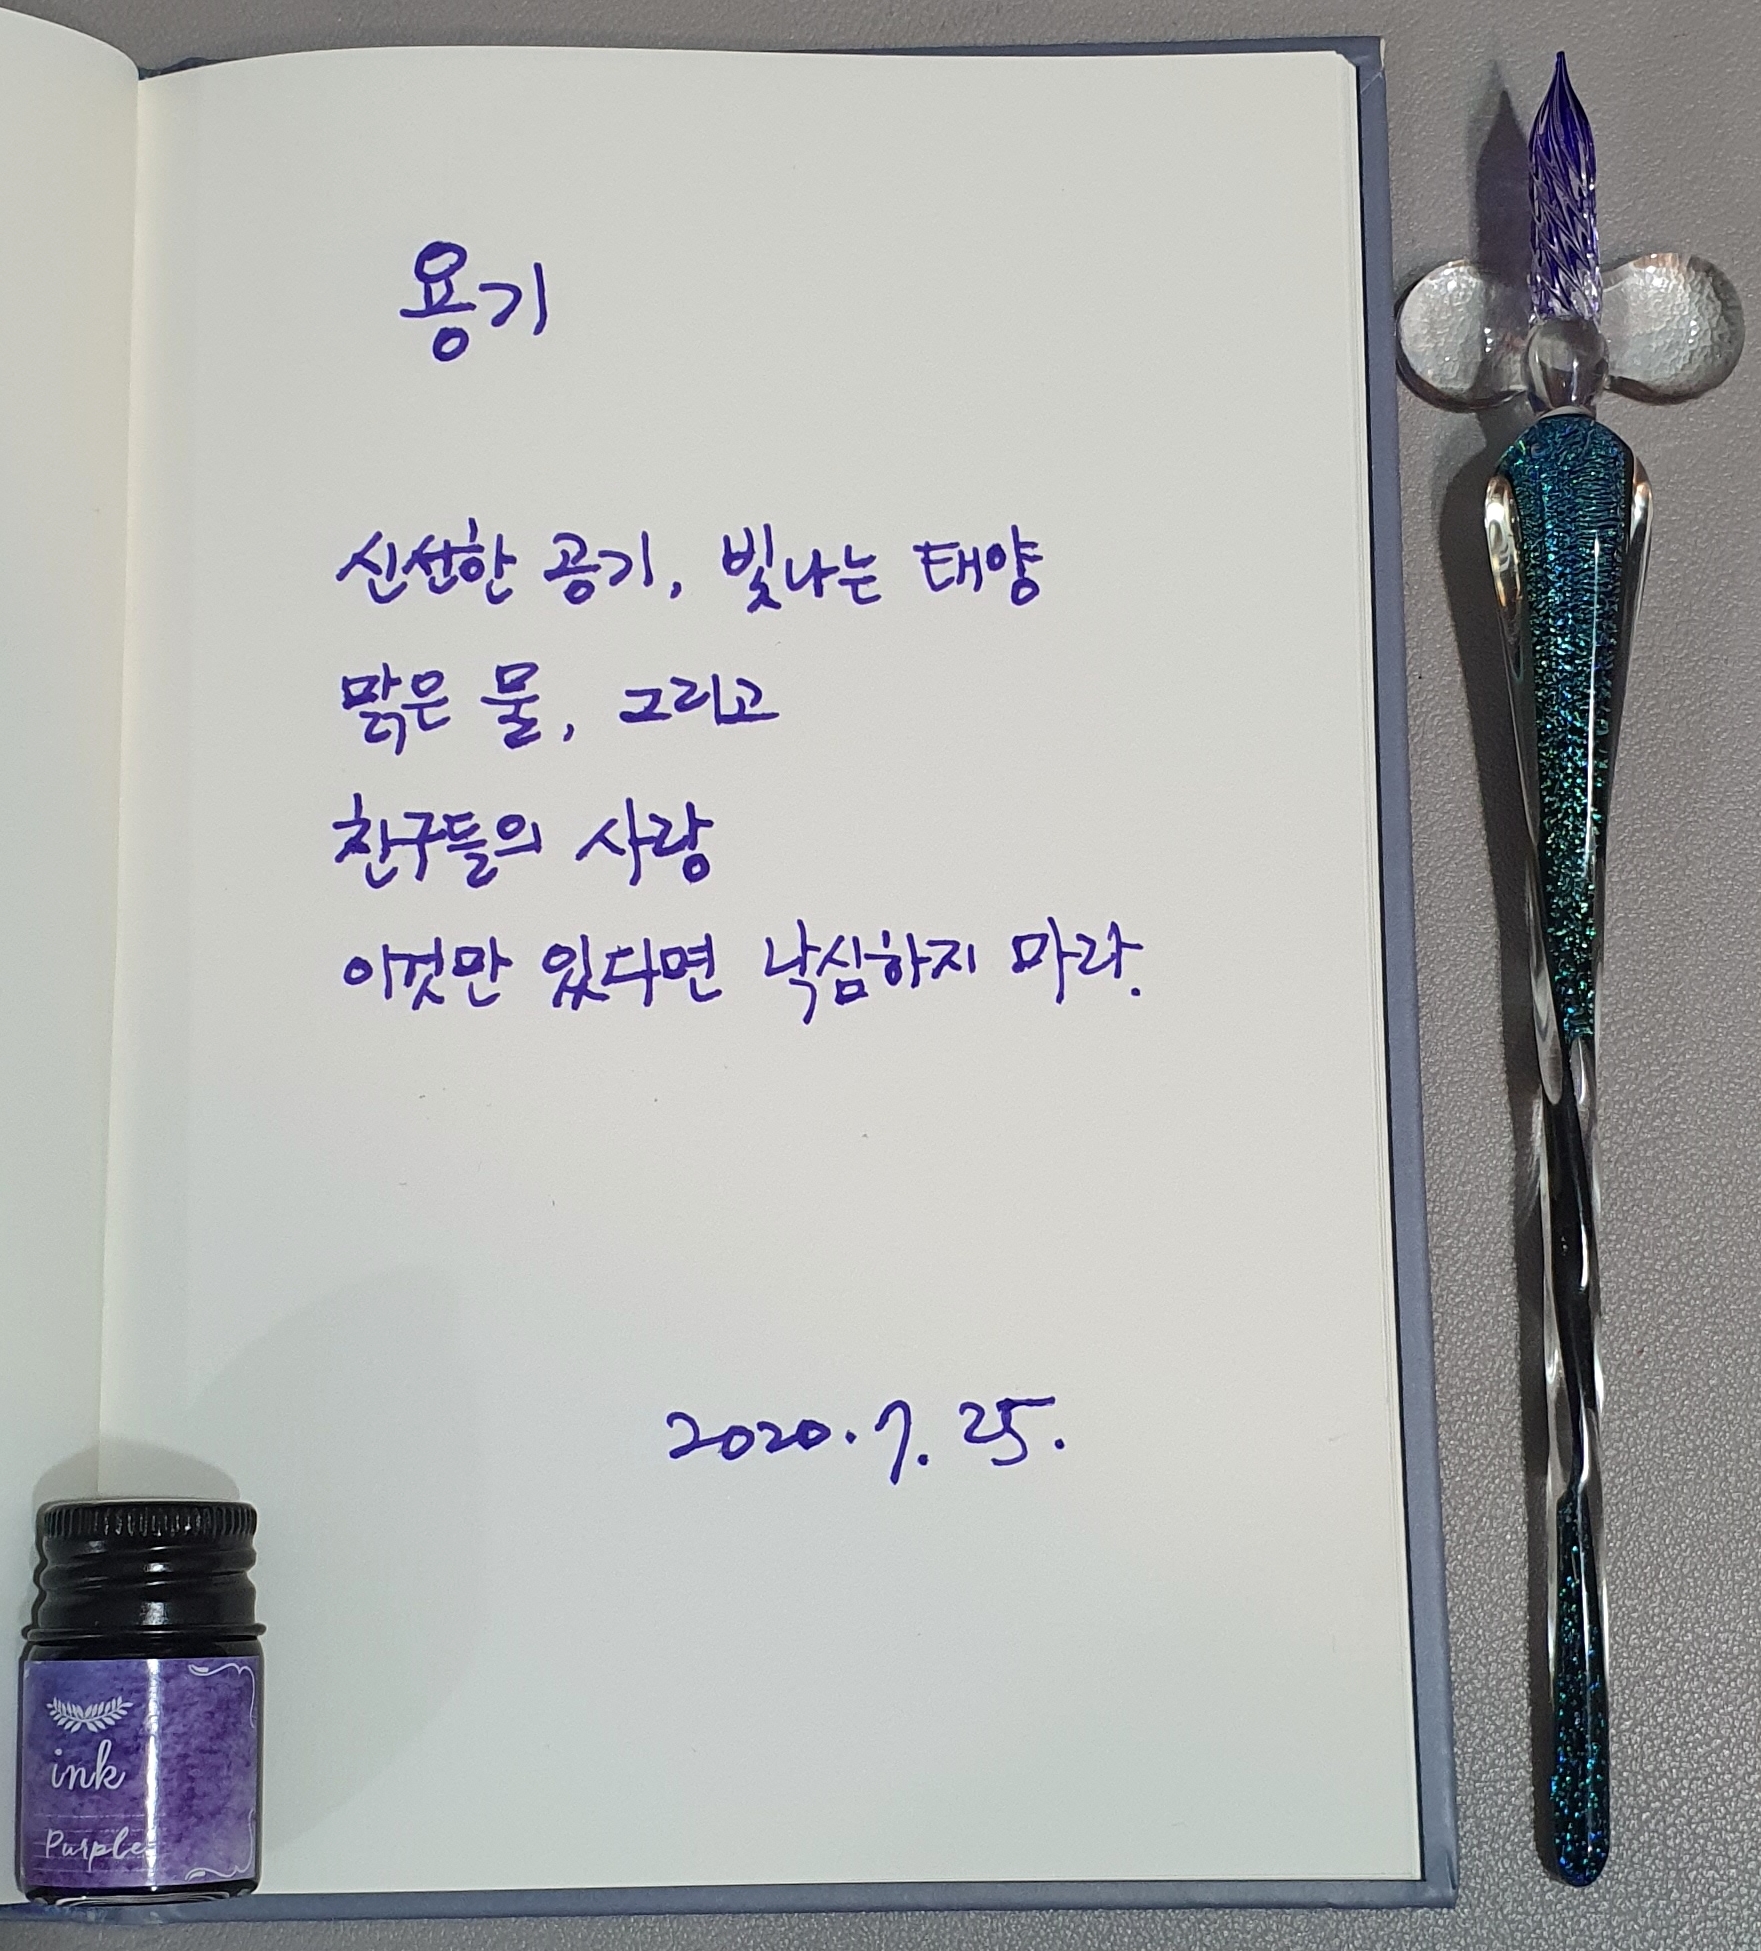 용기
신선한 공기, 빛나는 태양
맑은 물, 그리고
친구들의 사랑
이것만 있다면 낙심하지 마라.
2020. 7. 25.
ink
Purple